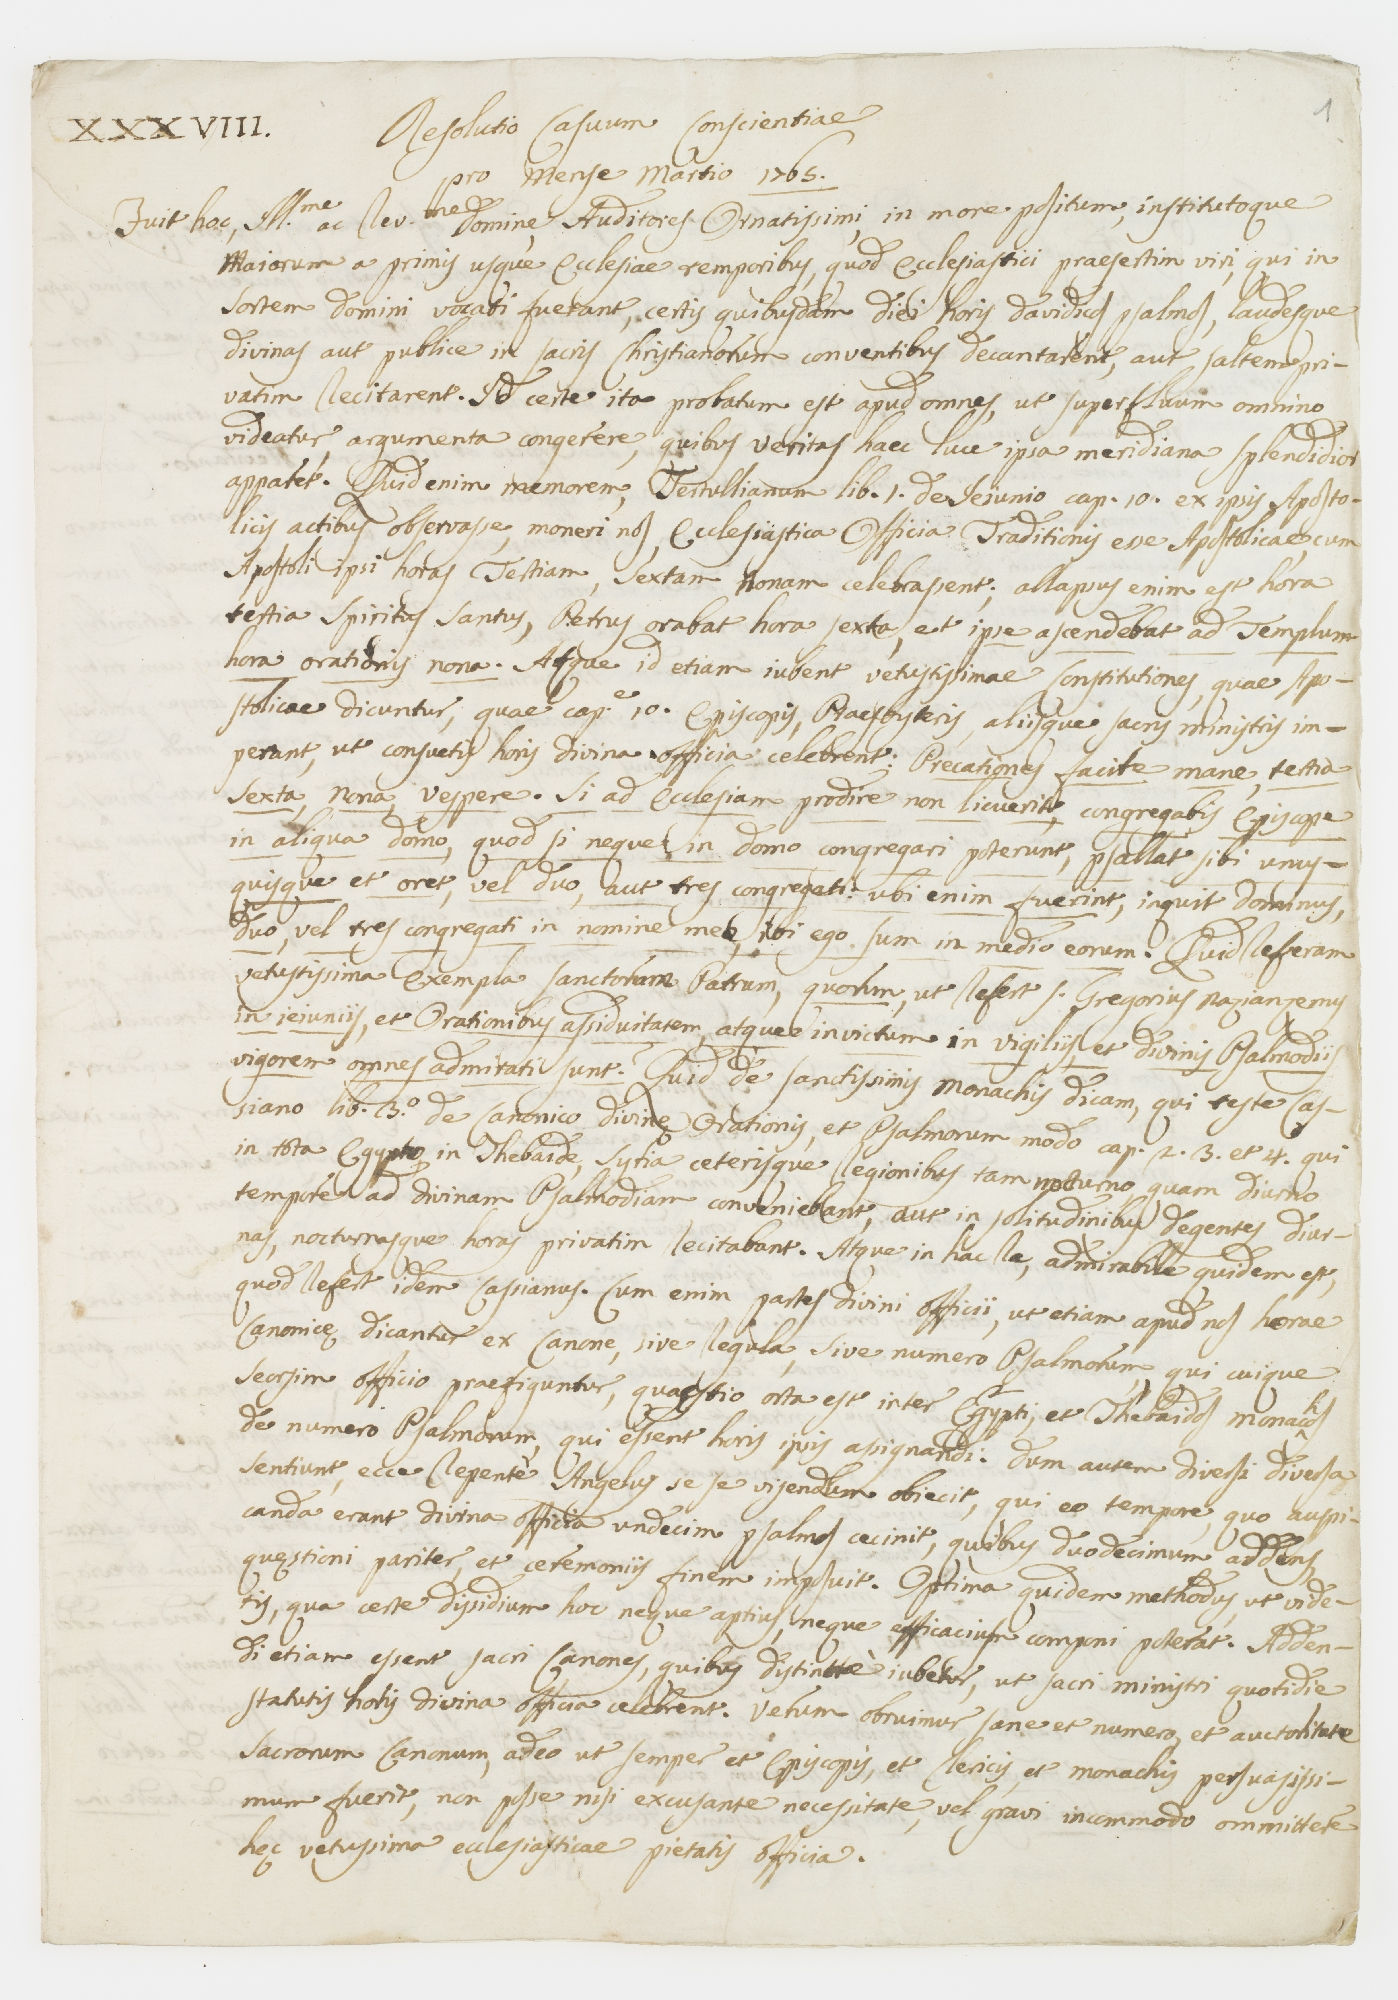 1
XXXVIII.
Resolutio Casuum Conscientiae
pro Mense Martio 1765.
Fuit hoc, Ill.me ac Rev.me Domine, Auditores Ornatissimi, in more positum, institutoque
Maiorum a primis usque Ecclesiae temporibus, quod Ecclesiastici praesertim viri, qui in
sortem Domini vocati fuerant, certis quibusdam diei horis davidicos psalmos, laudesque
divinas aut publice in sacris Christianorum conventibus decantarent, aut saltem pri-
vatim recitarent. Id certe ita probatum est apud omnes, ut superfluum omnino
videatur argumenta congerere, quibus veritas haec luce ipsa meridiana splendidior
appatet. Quid enim memorem, Tertullianum lib. 1. de Jeiunio cap. 10. ex ipsis Aposto-
licis actibus observasse, moneri nos, Ecclesiastica Officia Traditionis esse Apostolicae, cum
Apostoli ipsi horas Tertiam, Sextam Nonam celebrassent; allapsus enim est hora
tertia Spiritus Santus, Petrus orabat hora sexta, et ipse ascendebat ad Templum
hora orationis nona. Atque id etiam iubent vetustissimae Constitutiones, quae Apo-
stolicae dicuntur, quae cap.e 10. Episcopis, Praesbyteris, aliisque sacris ministris im-
perant, ut consuetis horis divina officia celebrent: Precationes facite mane, tertia
Sexta, Nona, vespere. Si ad Ecclesiam prodire non licuerit, congregabis Episcope
in aliqua domo, quod si neque in domo congregari poterunt, psallat sibi unus-
quisque et oret, vel duo, aut tres congregati: ubi enim fuerint, inquit Dominus,
duo, vel tres congregati in nomine meo, ibi ego sum in medio eorum. Quid referam
vetustissima Exempla sanctorum Patrum, quorum, ut refert S. Gregorius Nazianzenus
in ieiuniis, et Orationibus assiduitatem, atque invictum in vigiliis, et divinis Psalmodiis
vigorem omnes admirati sunt? Quid de sanctissimis Monachis dicam, qui teste Cas-
siano lib. 3.o de Canonico divinę Orationis, et Psalmorum modo cap. 2. 3. et 4. qui
in tota Egypto, in Thebaide, Syria ceterisque regionibus tam nocturno, quam diurno
tempore ad divinam Psalmodiam conveniebant, aut in solitudinibus degentes diur-
nas, nocturnasque horas privatim recitabant. Atque in hac re, admirabile quidem est,
quod refert idem Cassianus. Cum enim partes divini officii, ut etiam apud nos horae
Canonicę dicantur ex Canone, sive regula, sive numero Psalmorum, qui cuique
seorsim officio praefiguntur, quaestio orta est inter Egypti, et Thebaidos monachos
de numero Psalmorum, qui essent horis ipsis assignandi. Dum autem diversi diversa
sentiunt, ecce repentè Angelus se se visendum obiecit, qui eo tempore, quo auspi-
canda erant divina officia undecim psalmos cecinit, quibus duodecimum addens,
quęstioni pariter, et ceremoniis finem imposuit. Optima quidem methodus, ut vide-
tis, qua certe dissidium hoc neque aptius, neque efficacius componi poterat. Adden-
di etiam essent sacri Canones, quibus distinctè iubetur, ut sacri ministri quotidie
statutis horis divina officia celebrent. Verum obruimur sane et numero, et auctoritate
sacrorum Canonum, adeo ut semper et Episcopis, et Clericis, et monachis persuasissi-
mum fuerit, non posse nisi excusante necessitate, vel gravi incommodo ommittere
hęc vetussima ecclesiasticae pietatis officia.